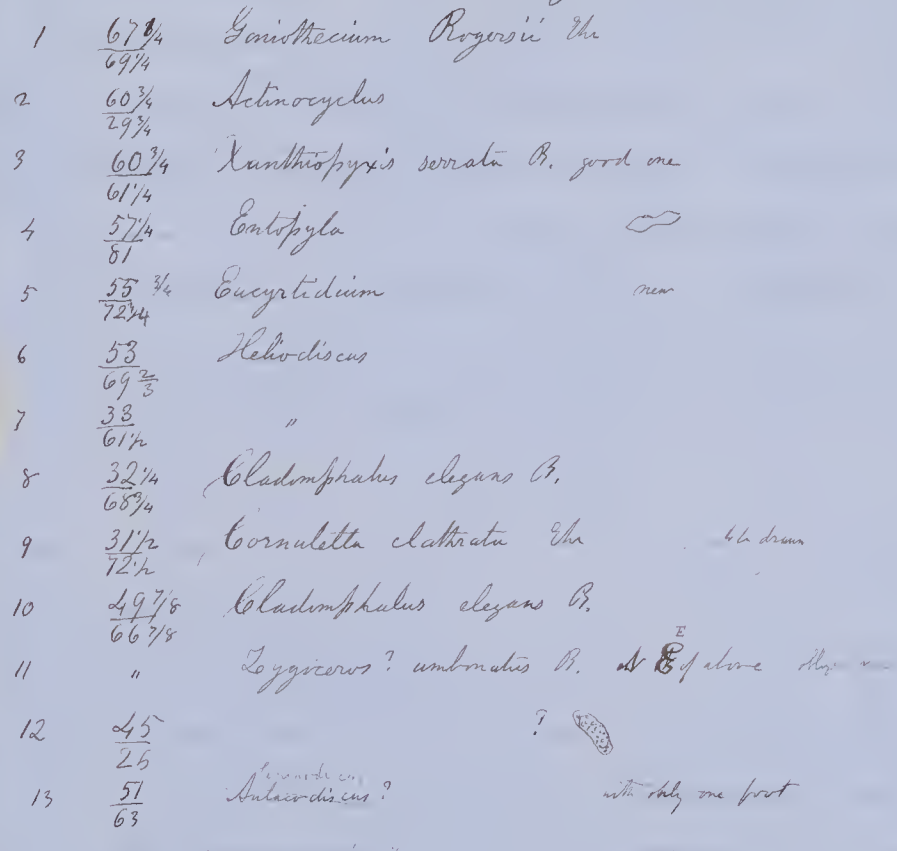 1 67 1/4 / 69 1/4 Goniothecium Rogersii Ehr
2 60 3/4 / 29 3/4 Actinocyclus
3 60 3/4 / 61 1/4 Xanthiopyxis serrata B. good one
4 57 1/4 / 81 Entopyla
5 55 3/4 / 72 3/4 Eucyrtidium new
6 53 / 69 2/3 Heliodiscus
7 33 / 61 1/2 "
8 32 1/4 / 68 3/4 Cladomphalus elegans B.
9 31 1/2 / 72 1/2 Cornutella clathrata Ehr drawn
10 49 7/8 / 66 7/8 Cladomphalus elegans B.
11 " Zygiceros? umbonatus B. E of above
12 45 / 26 ?
13 51 / 63 Aulacodiscus? with only one foot